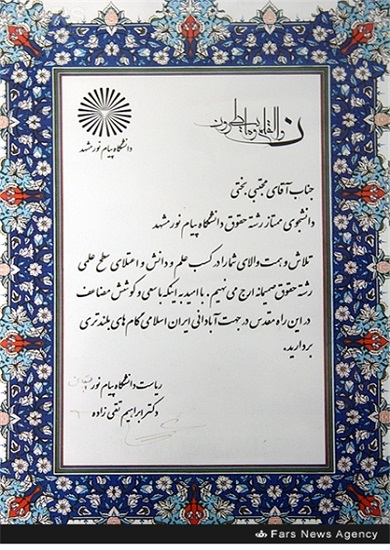 ن والقلم وما یسطرون
دانشگاه پیام نور مشهد
جناب آقای مجتبی بختی
دانشجوی ممتاز رشته حقوق دانشگاه پیام نور مشهد
تلاش و همت والای شما را در کسب علم و دانش و اعتلای سطح علمی
رشته حقوق صمیمانه ارج می نهیم . با امید به اینکه با سعی و کوشش مضاعف
در این راه مقدس در جهت آبادانی ایران اسلامی گام های بلندتری
بردارید.
ریاست دانشگاه پیام نور
دکتر ابراهیم تقی زاده
Fars News Agency